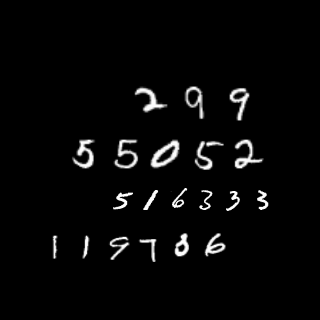 299
55052
516333
119786